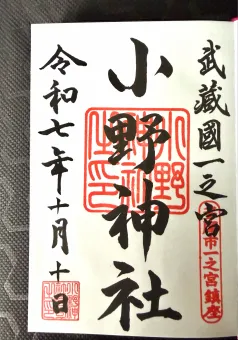 武蔵國一之宮
市一之宮鎮座
小野神社
小野神社之印
令和七年十月十日